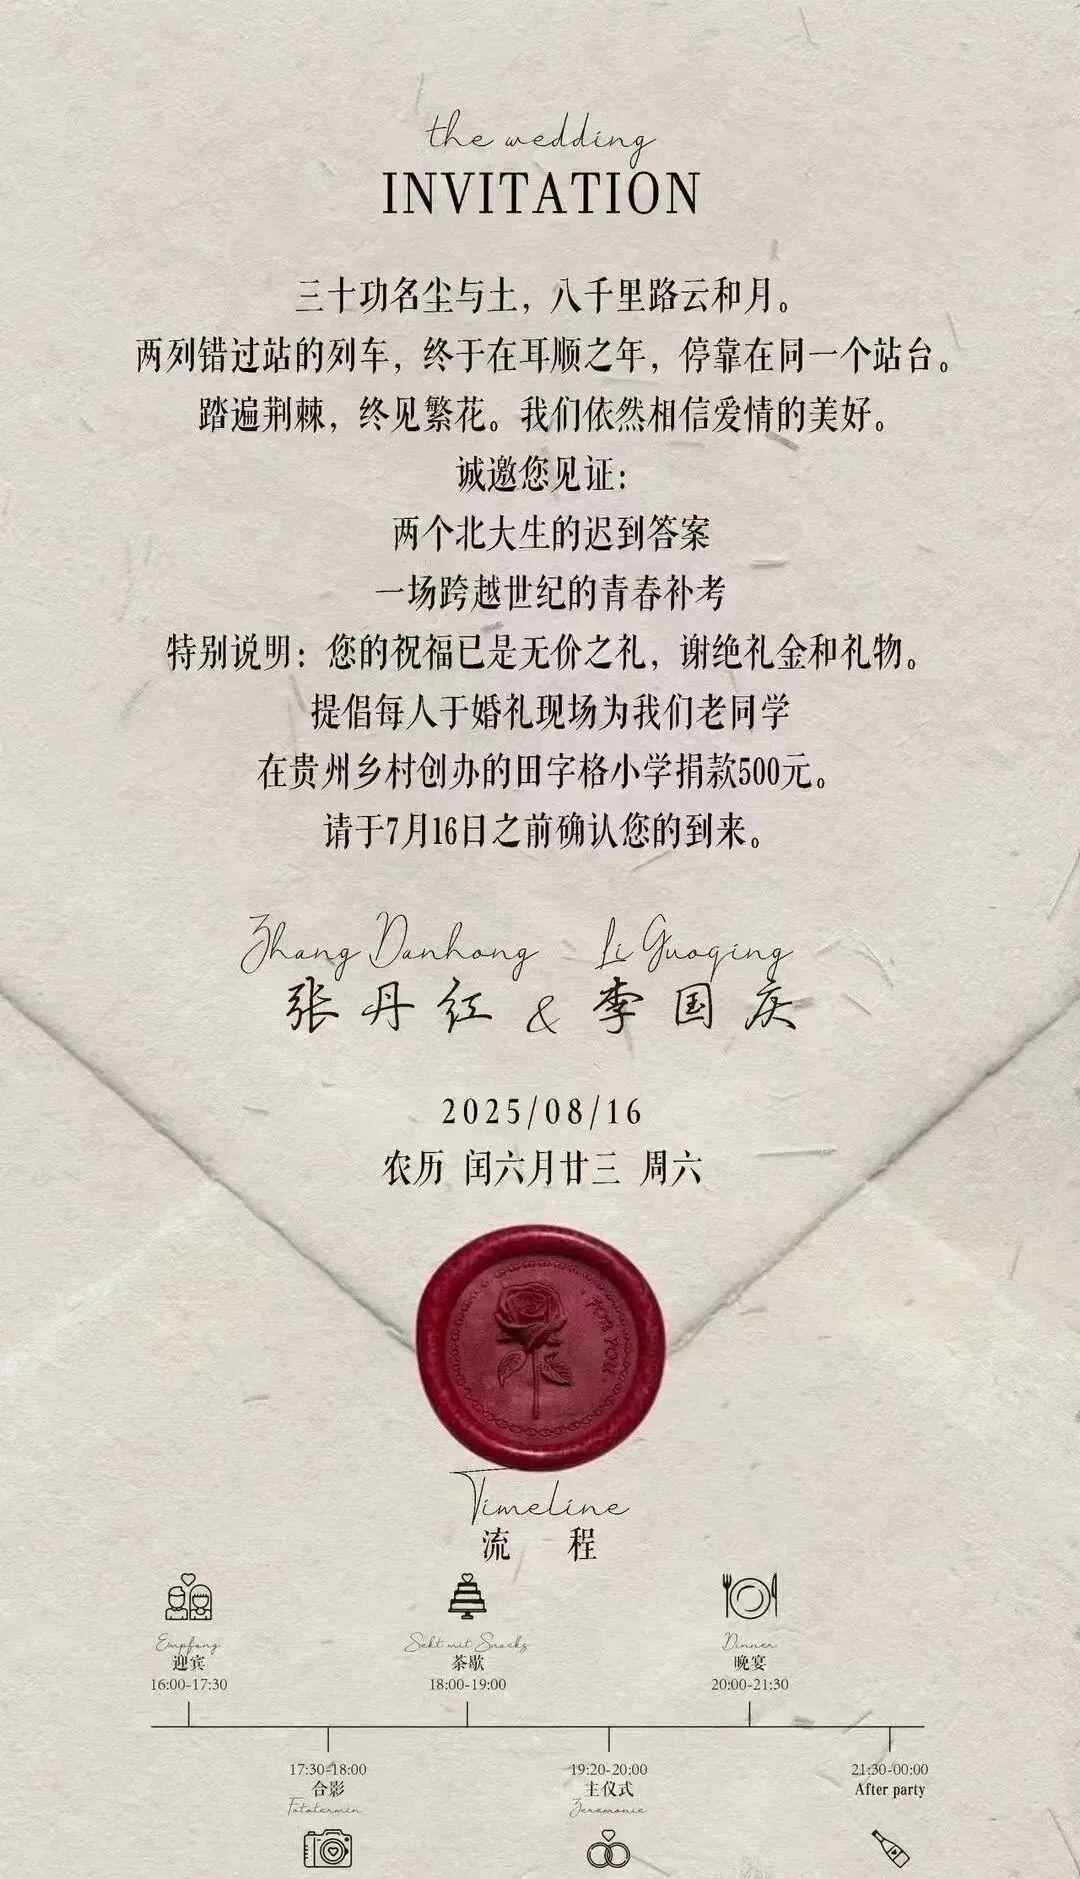 the wedding
INVITATION
三十功名尘与土，八千里路云和月。
两列错过站的列车，终于在耳顺之年，停靠在同一个站台。
踏遍荆棘，终见繁花。我们依然相信爱情的美好。
诚邀您见证：
两个北大生的迟到答案
一场跨越世纪的青春补考
特别说明：您的祝福已是无价之礼，谢绝礼金和礼物。
提倡每人于婚礼现场为我们老同学
在贵州乡村创办的田字格小学捐款500元。
请于7月16日之前确认您的到来。
Zhang Danhong Li Guoqing
张丹红 & 李国庆
2025/08/16
农历 闰六月廿三 周六
FOR YOU
Timeline
流 程
Empfang
迎宾
16:00-17:30
17:30-18:00
合影
Fototermin
Sekt mit Snacks
茶歇
18:00-19:00
19:20-20:00
主仪式
Zeremonie
Dinner
晚宴
20:00-21:30
21:30-00:00
After party